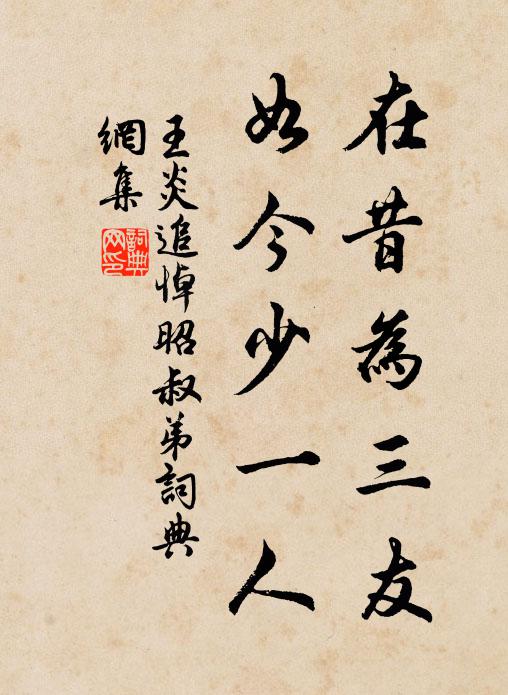 在昔為三友
如今少一人
王炎追悼昭叔弟詞典
網集
詞典
网印